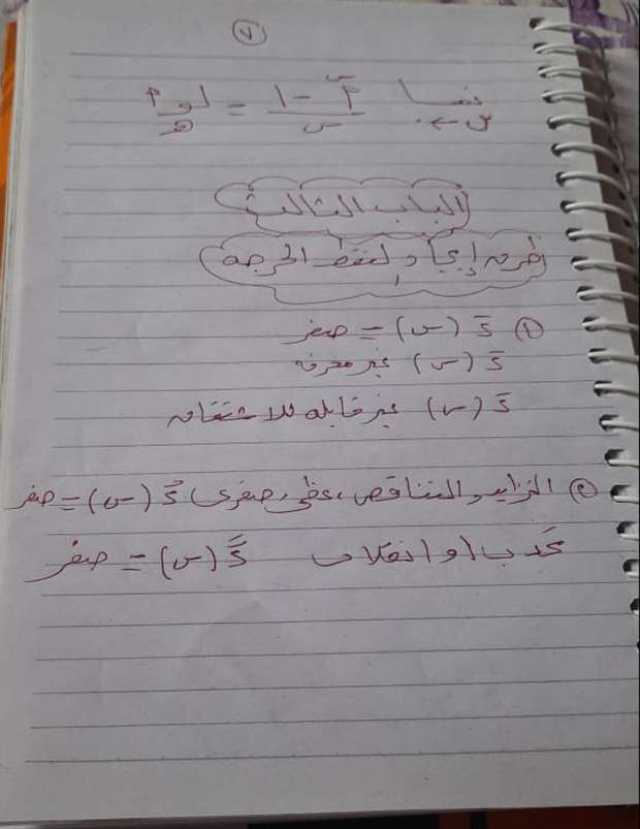 ٧
نهـــا س ← ٠ (أ^س - ١) / س = لو_هـ أ
الباب الثالث
طرق إيجاد النقط الحرجة
① دَ (س) = صفر
دَ (س) غير معرفه
دَ (س) غير قابله للاشتقاق
② التزايد والتناقص، عظمى، صغرى دَ (س) = صفر
تحدب او انقلاب دً (س) = صفر